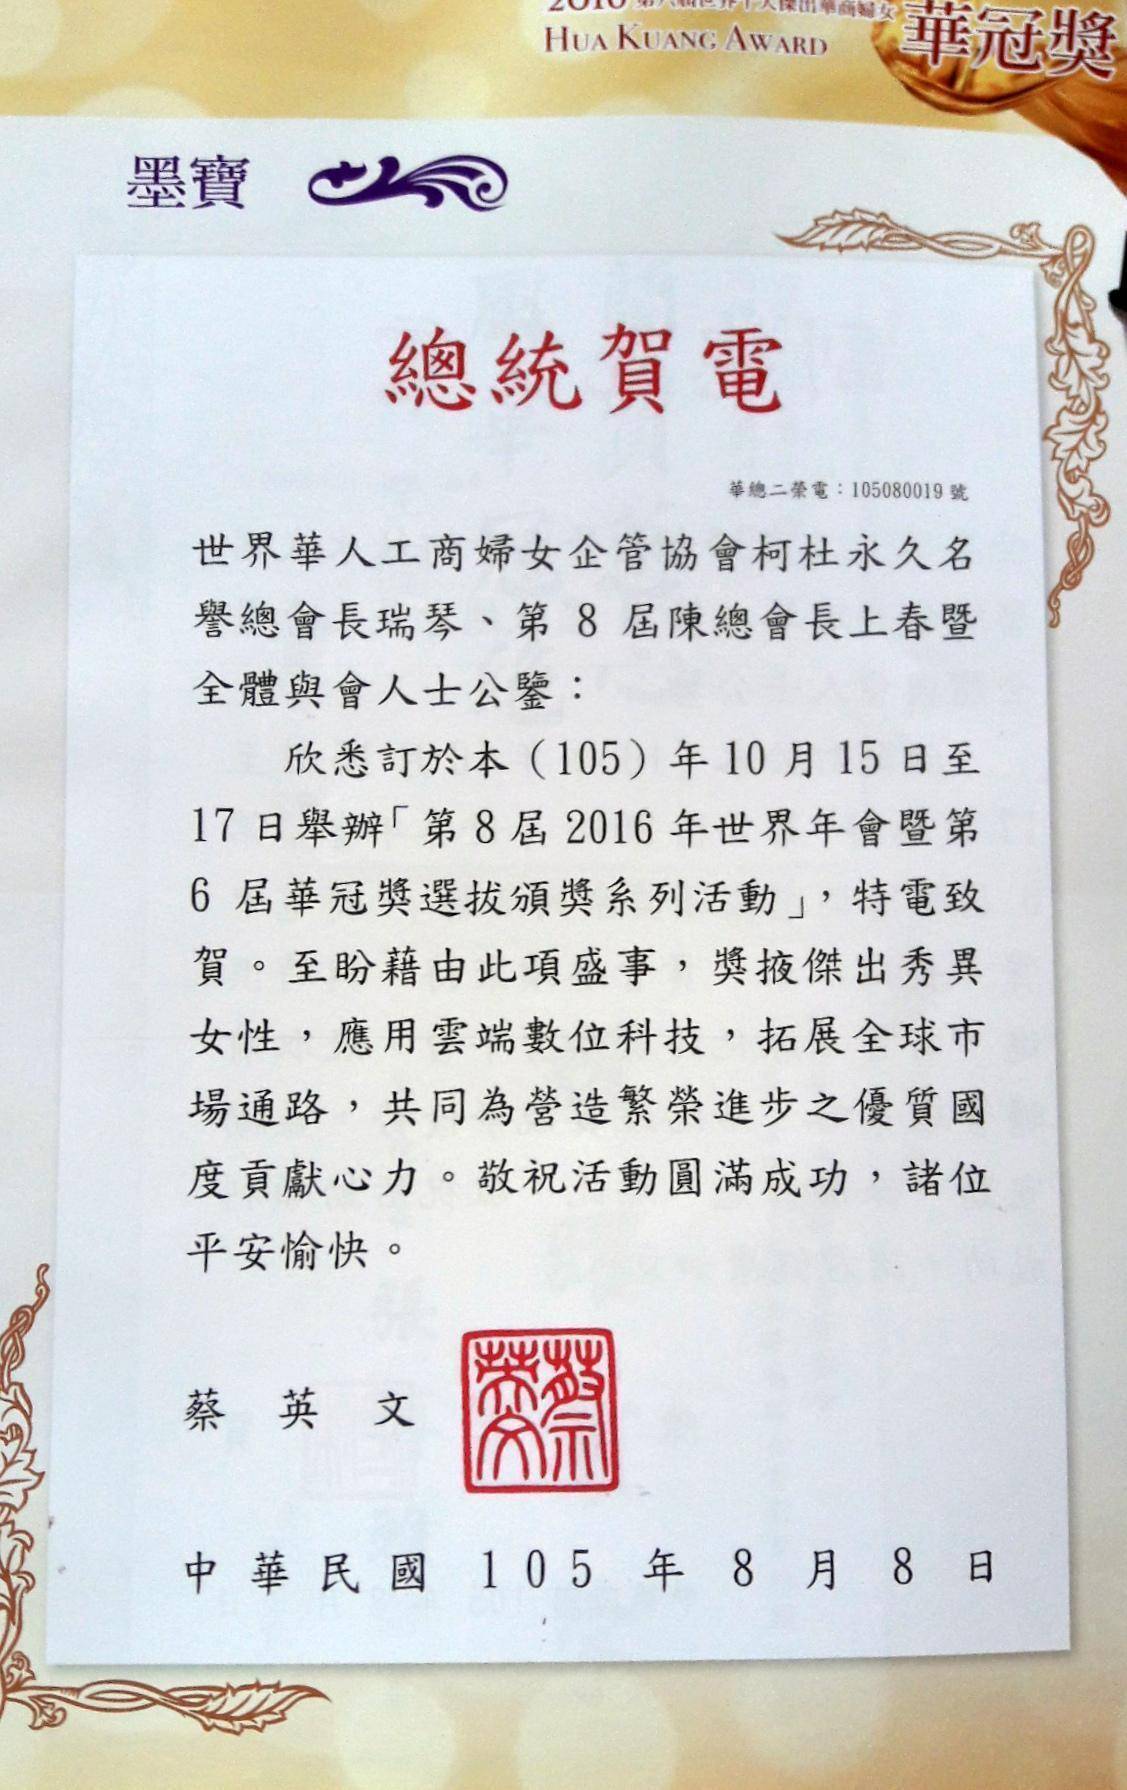 2016 第六屆世界十大傑出華商婦女
華冠獎
HUA KUANG AWARD
墨寶
總統賀電
華總二榮電：105080019號
世界華人工商婦女企管協會柯杜永久名
譽總會長瑞琴、第 8 屆陳總會長上春暨
全體與會人士公鑒：
欣悉訂於本（105）年 10 月 15 日至
17 日舉辦「第 8 屆 2016 年世界年會暨第
6 屆華冠獎選拔頒獎系列活動」，特電致
賀。至盼藉由此項盛事，獎掖傑出秀異
女性，應用雲端數位科技，拓展全球市
場通路，共同為營造繁榮進步之優質國
度貢獻心力。敬祝活動圓滿成功，諸位
平安愉快。
蔡英文
蔡英文
中華民國 105 年 8 月 8 日